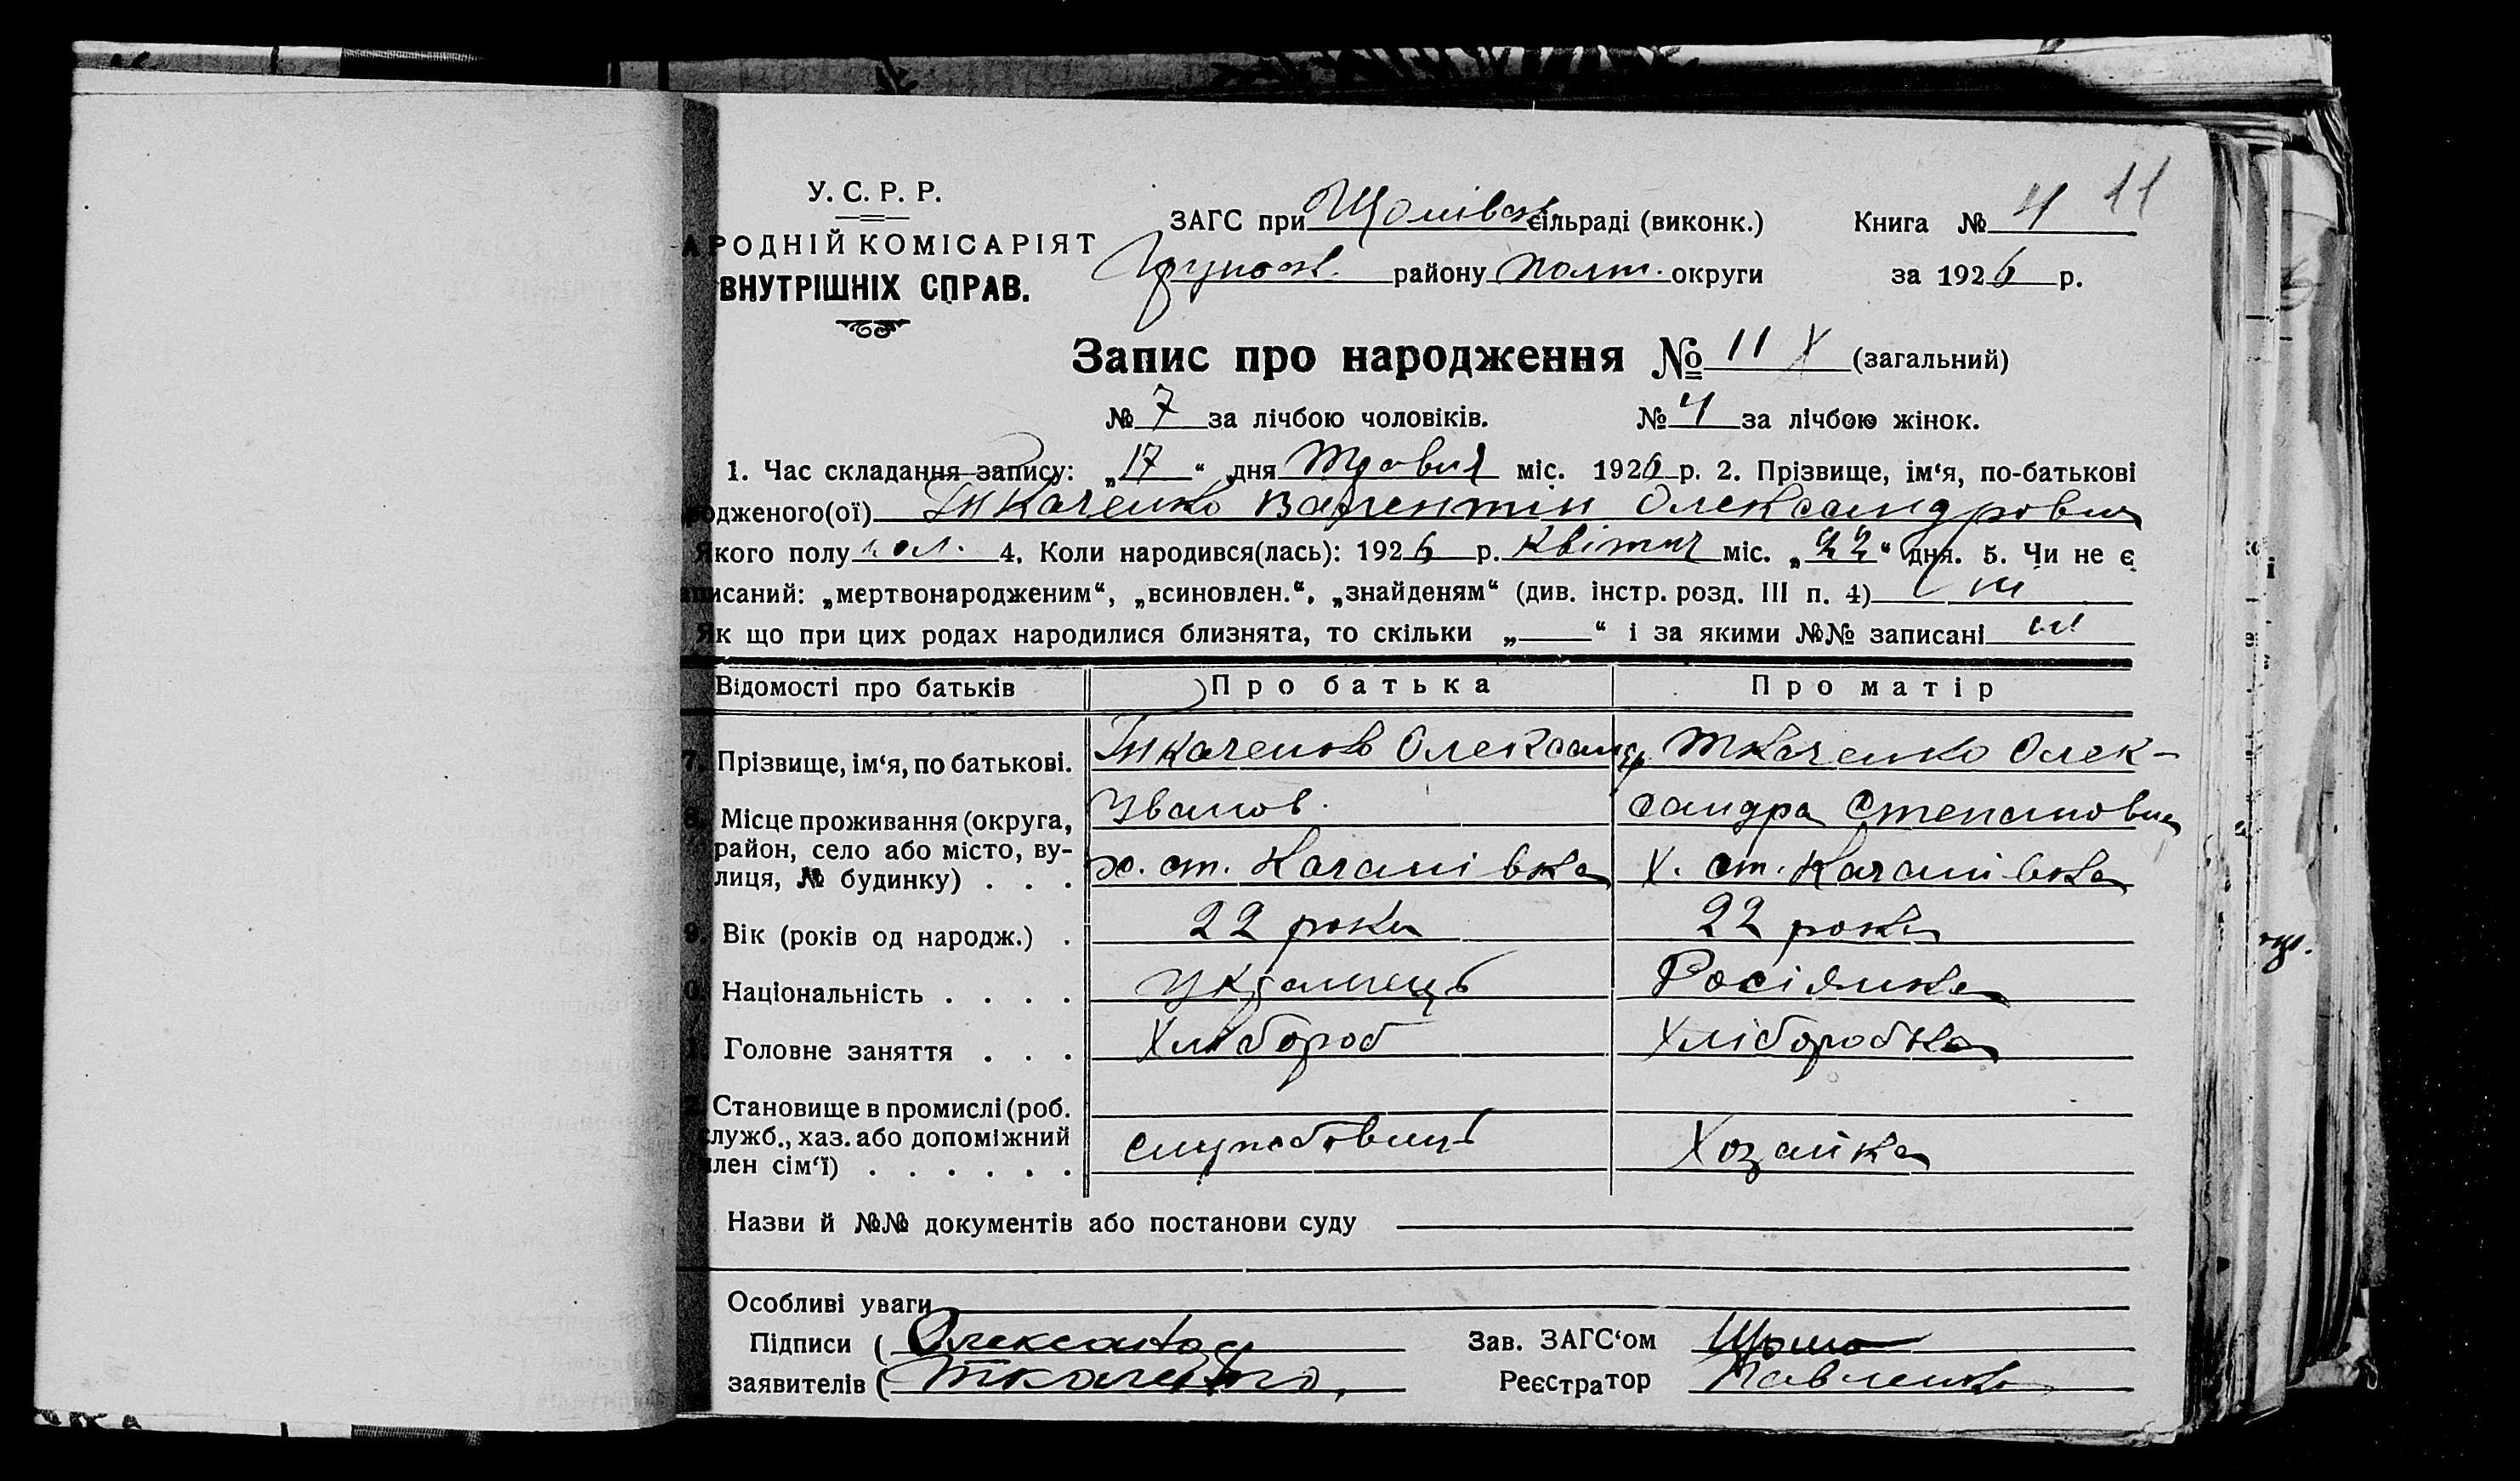 11
У.С.Р.Р.
АРОДНІЙ КОМІСАРІЯТ
ВНУТРІШНІХ СПРАВ.
ЗАГС при сільраді (виконк.) Книга № 4
району Полт. округи за 1926 р.
Запис про народження № 11 X (загальний)
№ 7 за лічбою чоловіків. № 4 за лічбою жінок.
1. Час складання запису: „17“ дня Травня міс. 1926 р. 2. Прізвище, ім‘я, по-батькові
одженого(ої) Ткаченко Валентин Олександрович
Якого полу чол. 4. Коли народився(лась): 1926 р. Квітня міс. „22“ дня. 5. Чи не є
писаний: „мертвонародженим“, „всиновлен.“, „знайденям“ (див. інстр. розд. III п. 4) ні
Як що при цих родах народилися близнята, то скільки „ “ і за якими №№ записані ні
Відомості про батьків Про батька Про матір
7. Прізвище, ім‘я, по батькові. Ткаченко Олександр Ткаченко Олек-
Іванов. сандра Степановна
8. Місце проживання (округа,
район, село або місто, ву-
лиця, № будинку) . . . х. ст. Качанівка Х. ст. Качанівка
9. Вік (років од народж.) . 22 роки 22 роки
0. Національність . . . . Українець Росіянка
Головне заняття . . . Хлібороб Хліборобка
Становище в промислі (роб.
служб., хаз. або допоміжний
член сім‘ї) . . . . . . службовець Хозайка
Назви й №№ документів або постанови суду
Особливі уваги
Підписи ( Олександр Зав. ЗАГС‘ом
заявителів ( Ткаченко. Реєстратор Павленко